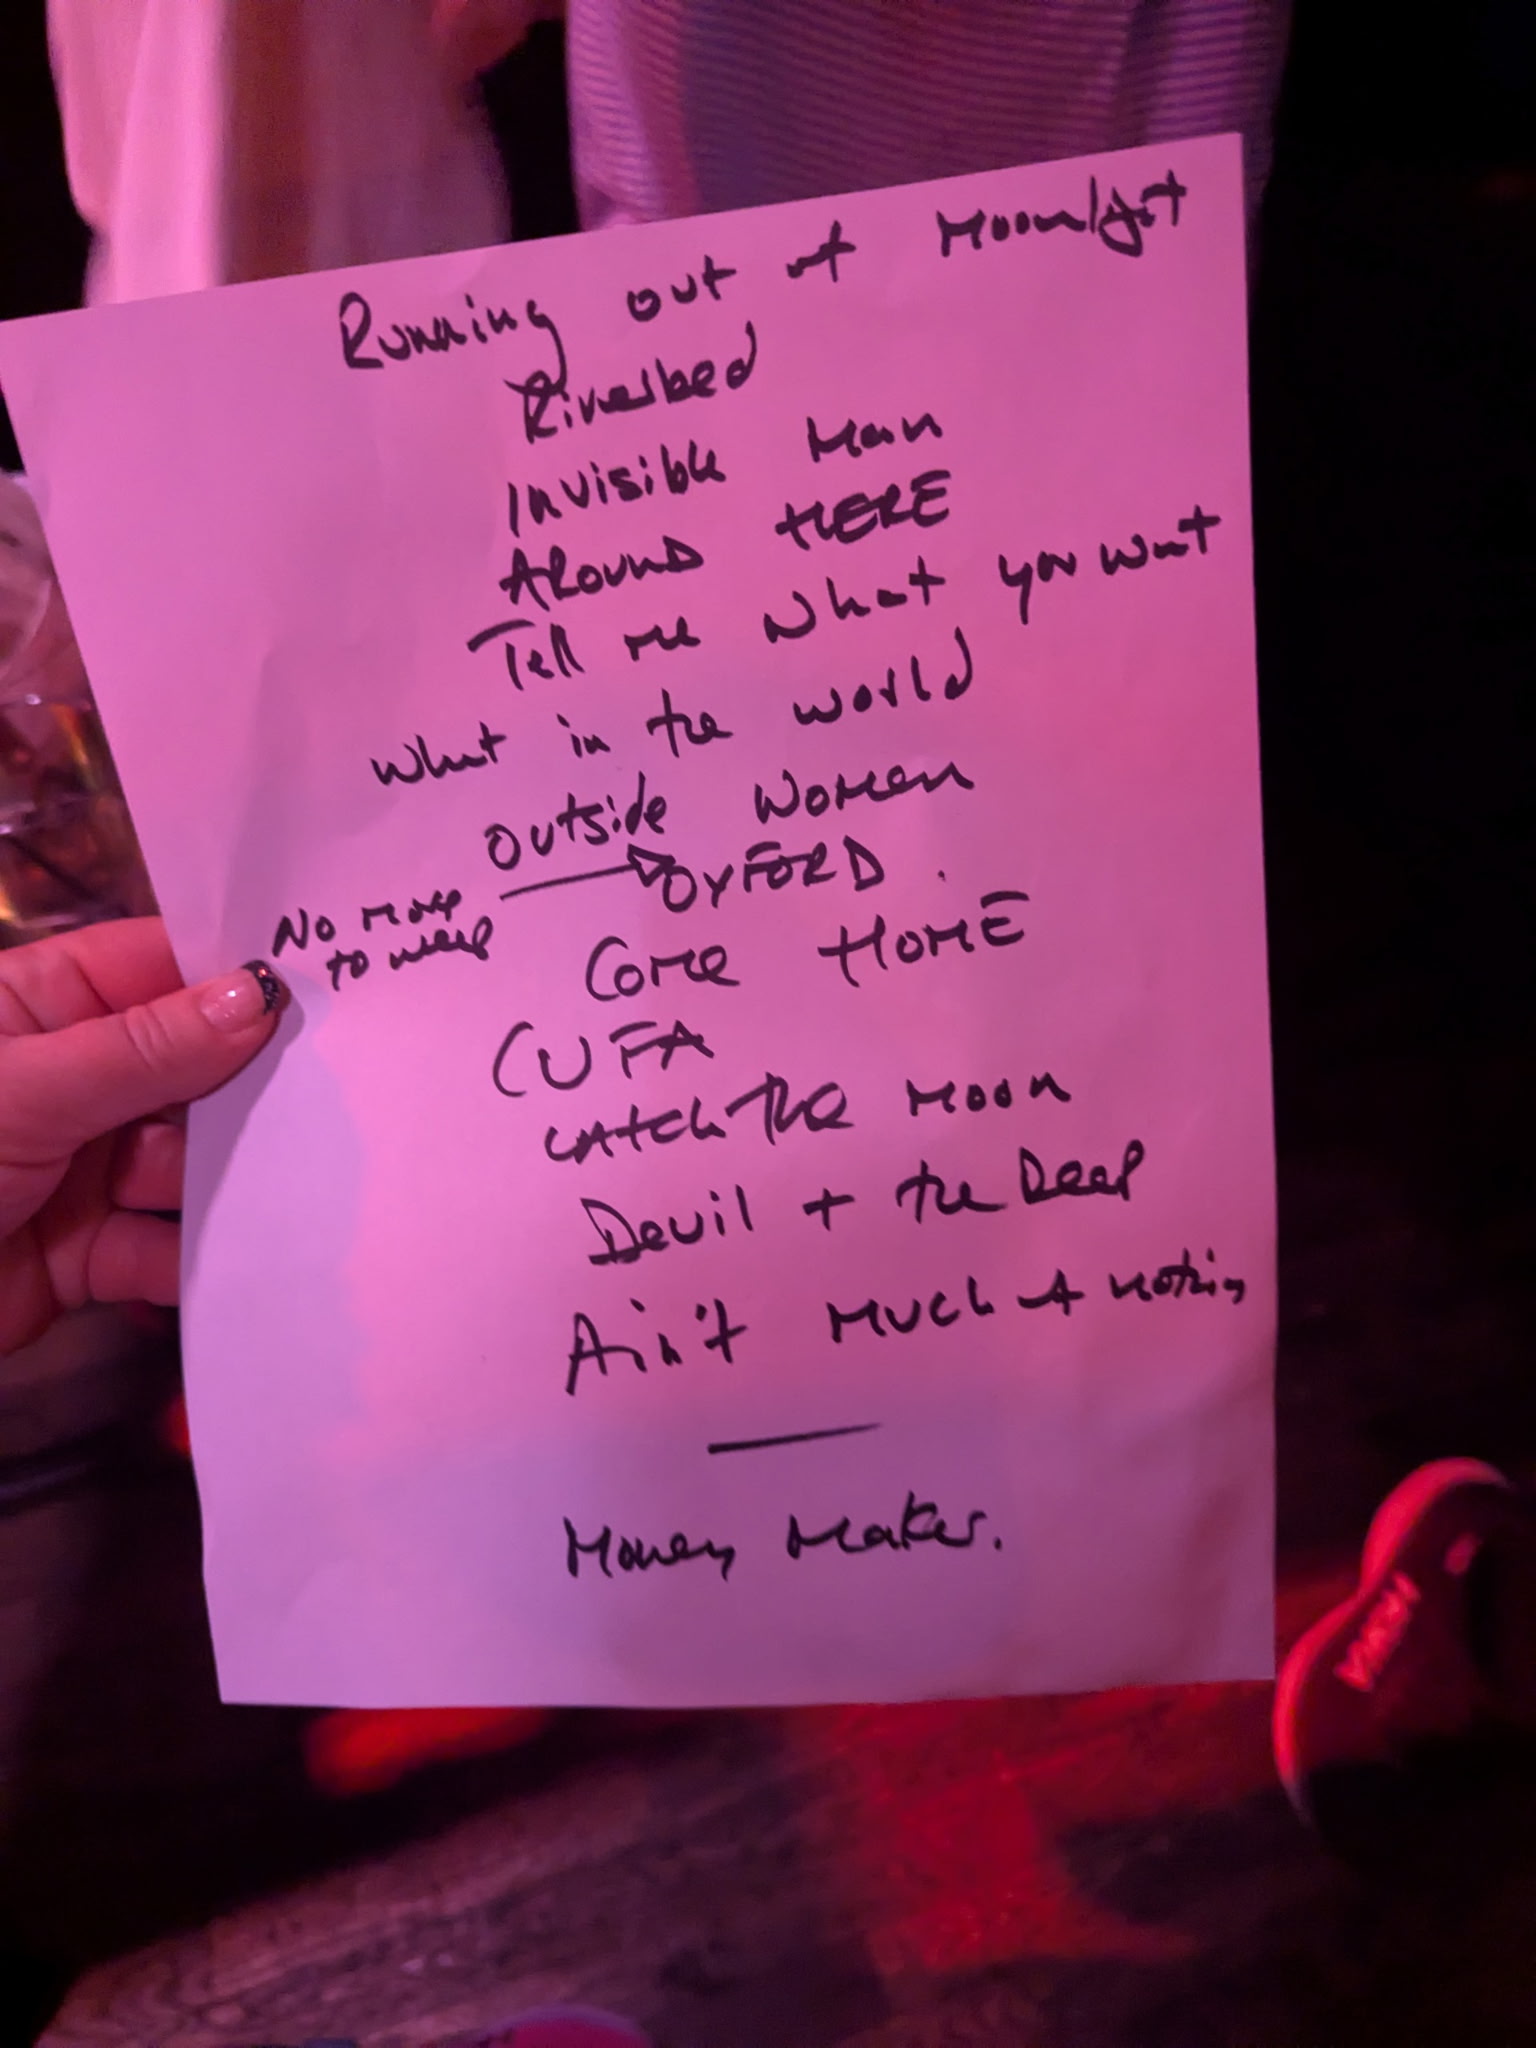 Running out of Moonlight
Riverbed
Invisible Man
AROUND HERE
Tell me what you want
what in the world
outside women
OXFORD
No more
to weep
Come HOME
CUFA
CATCH The Moon
Devil + the Deep
Ain't Much of nothing
Money Maker.
HOKA